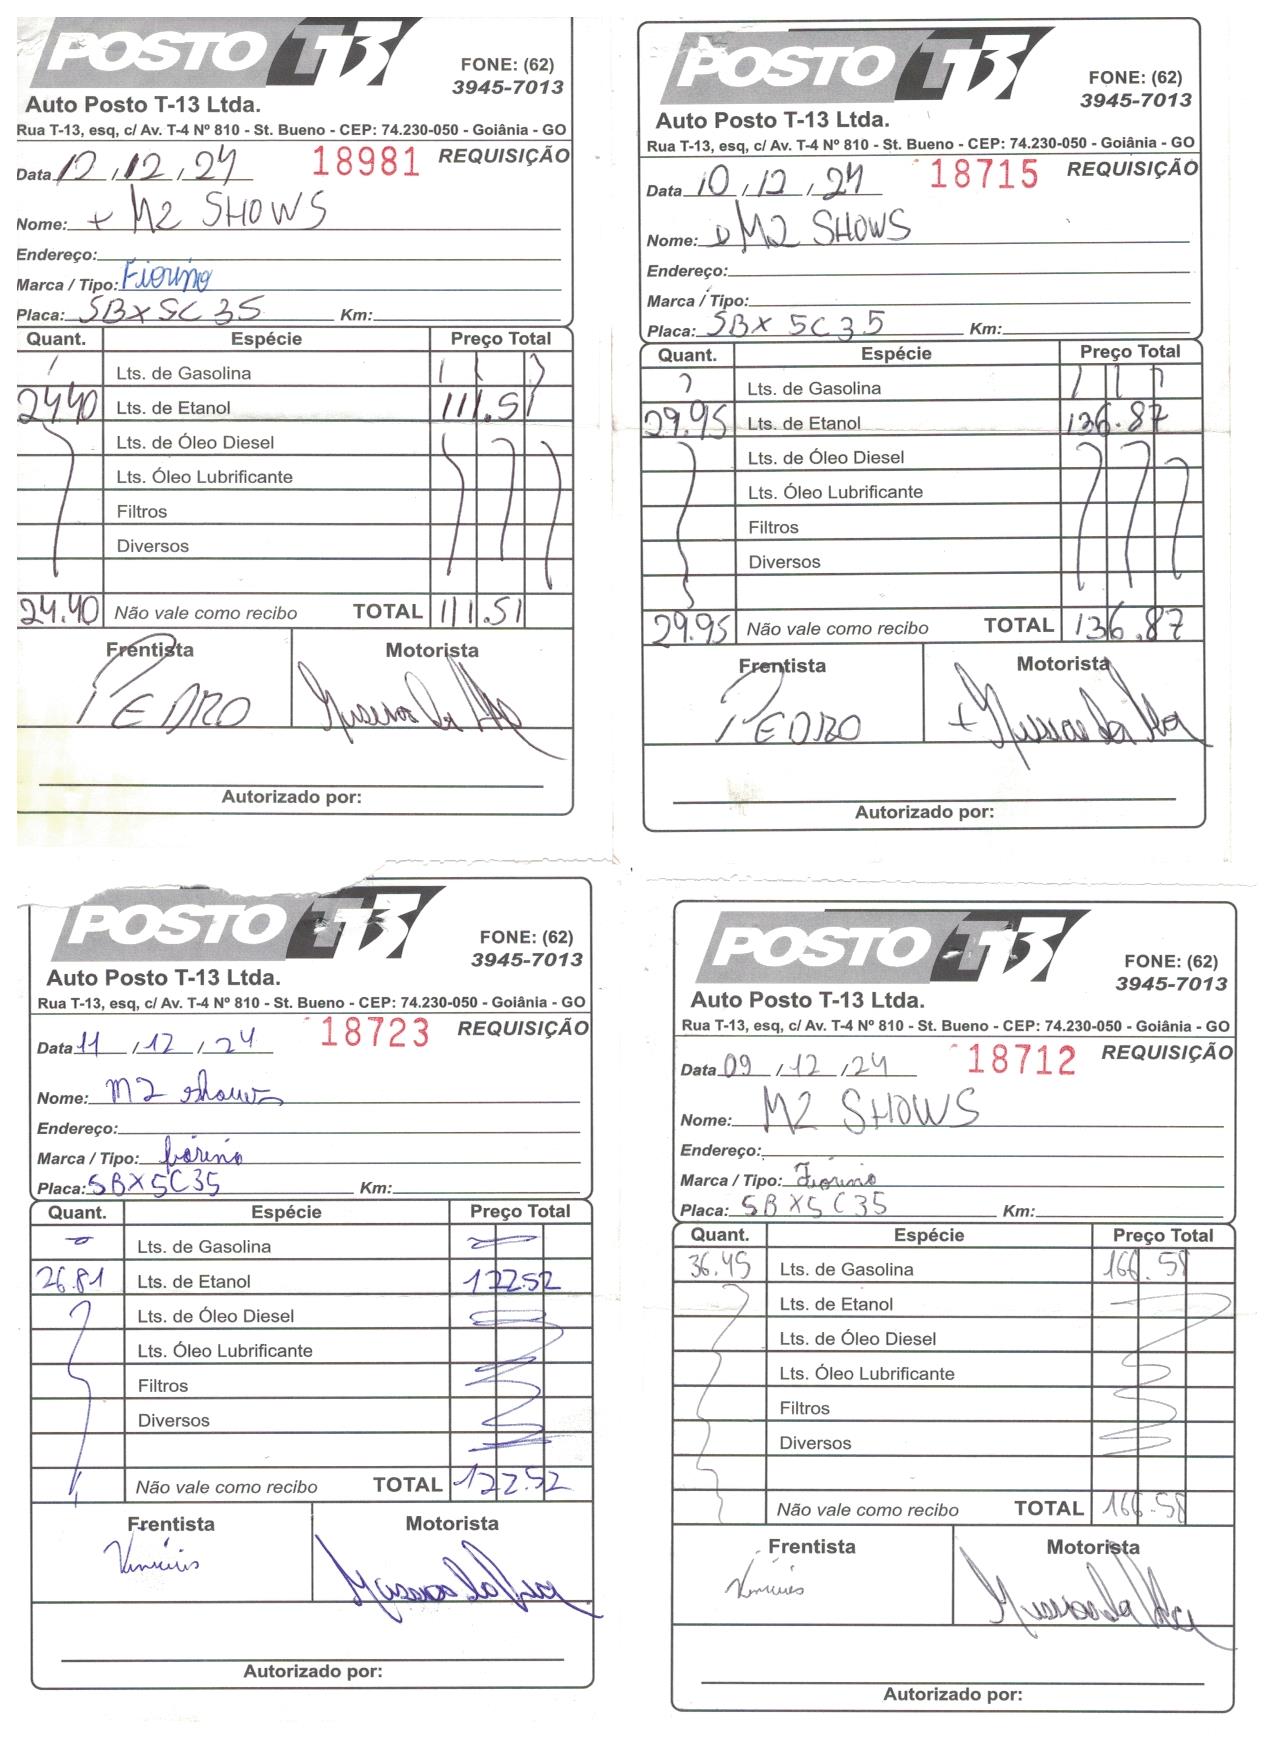 POSTO T13
FONE: (62)
3945-7013
Auto Posto T-13 Ltda.
Rua T-13, esq, c/ Av. T-4 Nº 810 - St. Bueno - CEP: 74.230-050 - Goiânia - GO
Data 12 , 12 , 24 18981 REQUISIÇÃO
Nome: + M2 SHOWS
Endereço:
Marca / Tipo: Fiorino
Placa: SBX 5C35 Km:
Quant. Espécie Preço Total
Lts. de Gasolina
24.40 Lts. de Etanol 111.51
Lts. de Óleo Diesel
Lts. Óleo Lubrificante
Filtros
Diversos
24.40 Não vale como recibo TOTAL 111.51
Frentista Motorista
PEDRO
Autorizado por:
POSTO T13
FONE: (62)
3945-7013
Auto Posto T-13 Ltda.
Rua T-13, esq, c/ Av. T-4 Nº 810 - St. Bueno - CEP: 74.230-050 - Goiânia - GO
Data 10 , 12 , 24 18715 REQUISIÇÃO
Nome: M2 SHOWS
Endereço:
Marca / Tipo:
Placa: SBX 5C35 Km:
Quant. Espécie Preço Total
Lts. de Gasolina
29.95 Lts. de Etanol 136.87
Lts. de Óleo Diesel
Lts. Óleo Lubrificante
Filtros
Diversos
29.95 Não vale como recibo TOTAL 136.87
Frentista Motorista
PEDRO
Autorizado por:
POSTO T13
FONE: (62)
3945-7013
Auto Posto T-13 Ltda.
Rua T-13, esq, c/ Av. T-4 Nº 810 - St. Bueno - CEP: 74.230-050 - Goiânia - GO
Data 11 , 12 , 24 18723 REQUISIÇÃO
Nome: M2 shows
Endereço:
Marca / Tipo: fiorino
Placa: SBX5C35 Km:
Quant. Espécie Preço Total
Lts. de Gasolina
26.81 Lts. de Etanol 122.52
Lts. de Óleo Diesel
Lts. Óleo Lubrificante
Filtros
Diversos
Não vale como recibo TOTAL 122.52
Frentista Motorista
Vinicius
Autorizado por:
POSTO T13
FONE: (62)
3945-7013
Auto Posto T-13 Ltda.
Rua T-13, esq, c/ Av. T-4 Nº 810 - St. Bueno - CEP: 74.230-050 - Goiânia - GO
Data 09 , 12 , 24 18712 REQUISIÇÃO
Nome: M2 SHOWS
Endereço:
Marca / Tipo: Fiorino
Placa: SBX5C35 Km:
Quant. Espécie Preço Total
36.45 Lts. de Gasolina 166.58
Lts. de Etanol
Lts. de Óleo Diesel
Lts. Óleo Lubrificante
Filtros
Diversos
Não vale como recibo TOTAL 166.58
Frentista Motorista
Vinicius
Autorizado por: